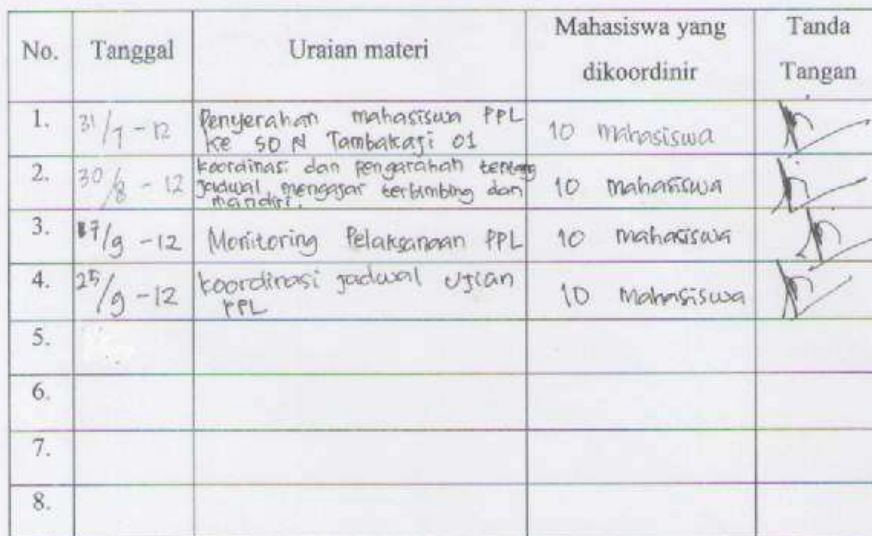 No. Tanggal Uraian materi Mahasiswa yang dikoordinir Tanda Tangan
1. 31/7 - 12 Penyerahan mahasiswa PPL ke SD N Tambakaji 01 10 mahasiswa
2. 30/8 - 12 koordinasi dan pengarahan tentang jadwal mengajar terbimbing dan mandiri. 10 mahasiswa
3. 17/9 - 12 Monitoring Pelaksanaan PPL 10 mahasiswa
4. 25/9 - 12 koordinasi jadwal Ujian PPL 10 Mahasiswa
5.
6.
7.
8.